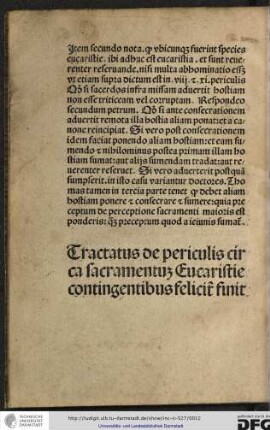 Item secundo nota. ꝙ vbicunqꝫ fuerint species
eucaristie. ibi adhuc est eucaristia. et sunt reue-
renter reseruande. nisi multa abhominatio essꝫ
vt etiam supra dictum est in. viij. ⁊. xj. periculis
Qḋ si sacerdos infra missam aduertit hostiam
non esse triticeam vel corruptam. Respondeo
secundum petrum. Qḋ si ante consecrationem
aduertit remota illa hostia aliam ponat: et a ca-
none reincipiat. Si vero post consecrationem
idem faciat ponendo aliam hostiam: et eam su-
mendo ⁊ nihilominus postea primam illam ho
stiam sumat: aut alijs sumendam tradat: aut re-
uerenter reseruet. Si vero aduerterit post quā
sumpserit. in isto casu variantur doctores. Tho
mas tamen in tercia parte tenet ꝙ debet aliam
hostiam ponere ⁊ consecrare ⁊ sumere: quia pre
ceptum de perceptione sacramenti maioris est
ponderis: qꝫ preceptum quod a ieiunis sumat̄.
Tractatus de periculis cir
ca sacramentuꝫ Eucaristie
contingentibus felicit̄ finit
http://tudigit.ulb.tu-darmstadt.de/show/inc-ii-527/0012
Universitäts- und Landesbibliothek Darmstadt
DFG